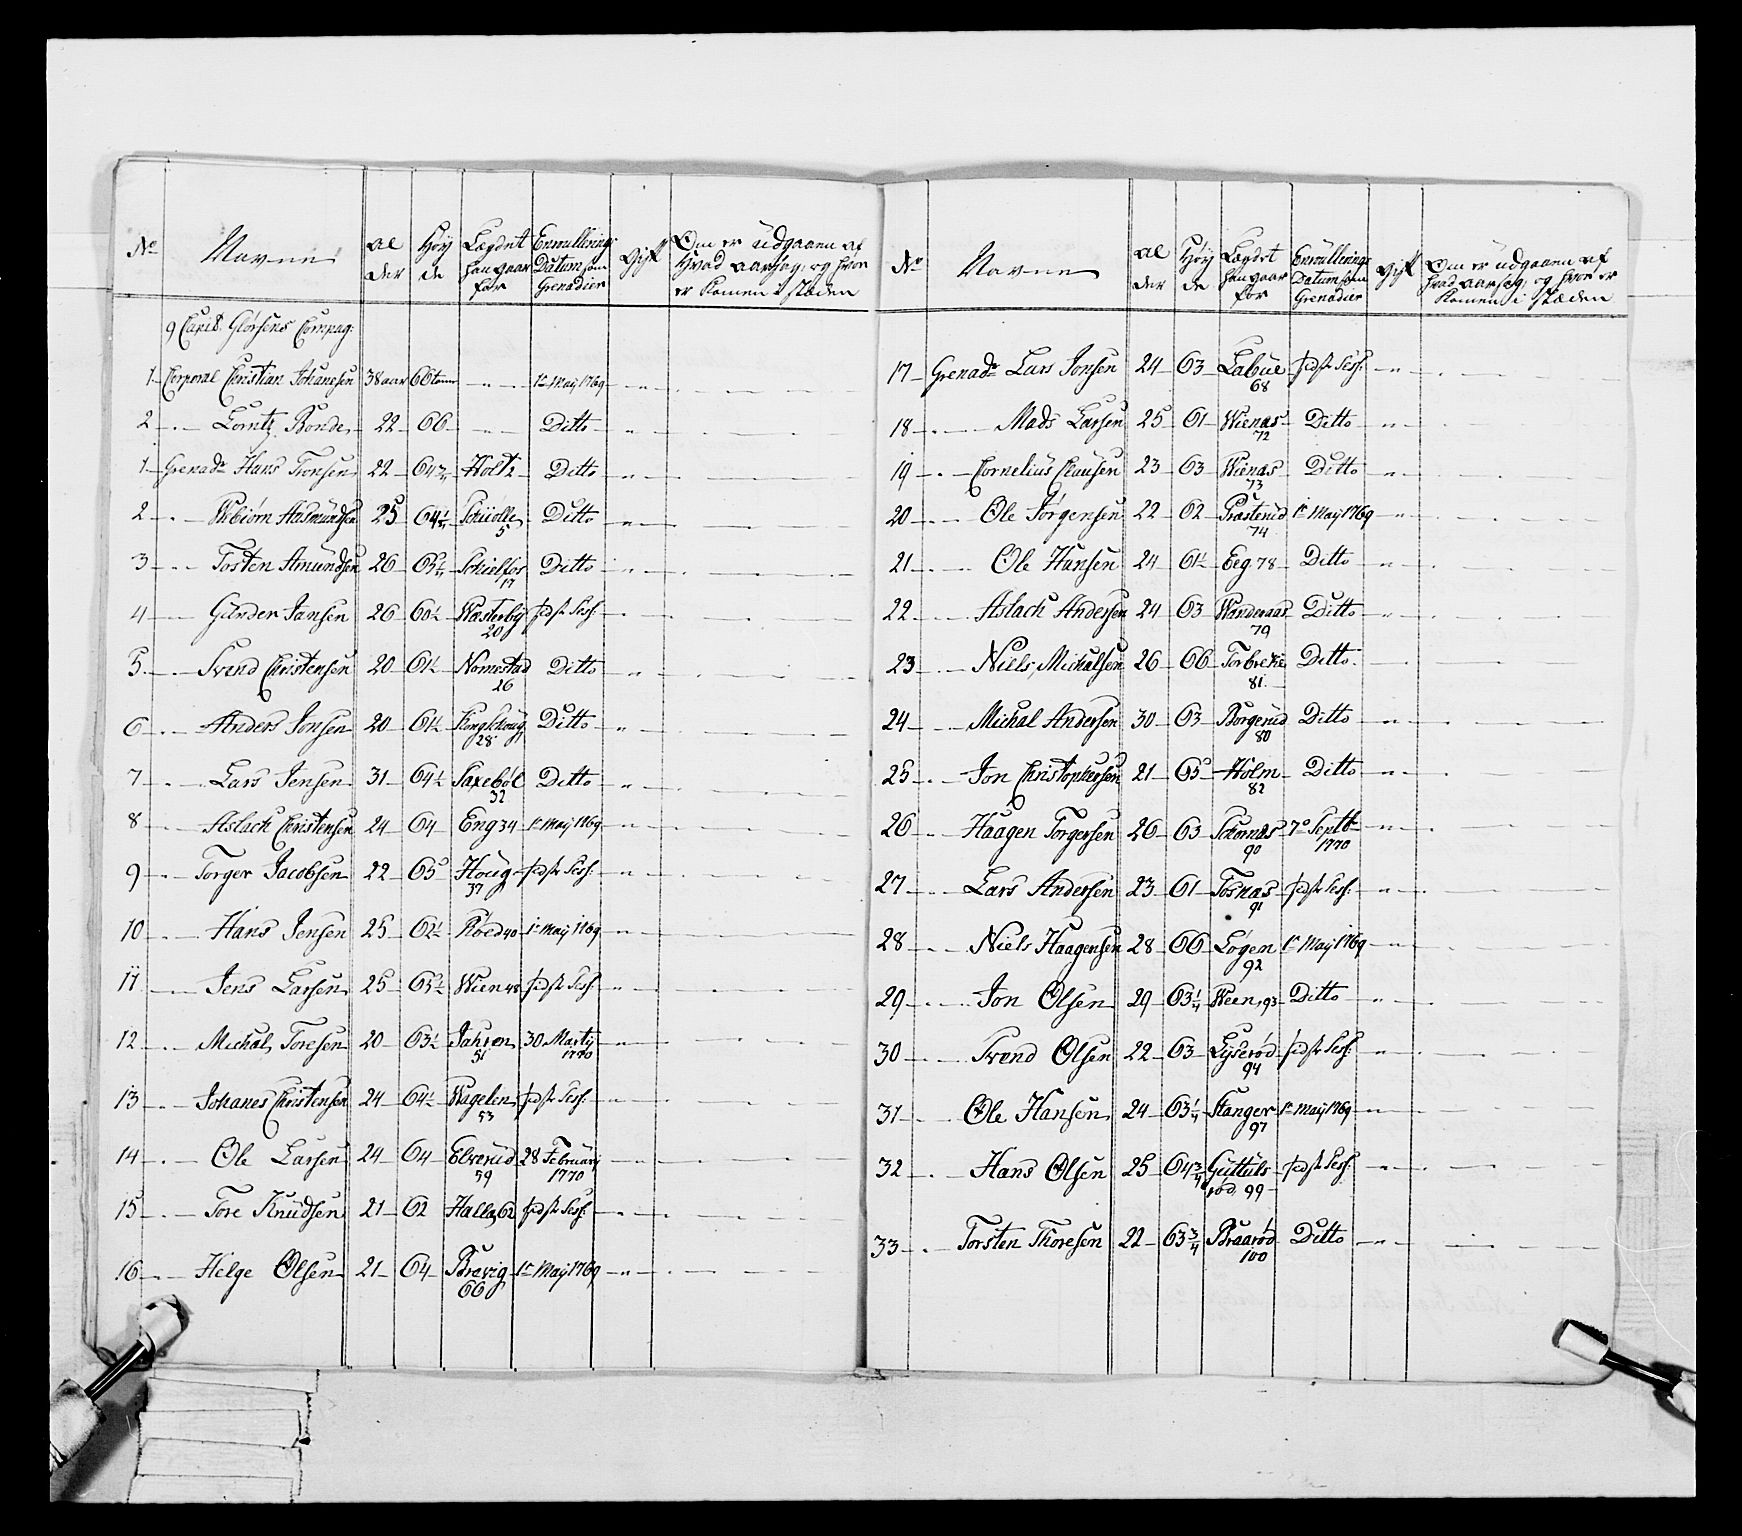 No Navne al der Høy de Lægdet han gaar for Enroullerings Datum som Grenadier Gift Om er udgaaen af hvad aarsag, og hvor er komen i stæden
9 Capit. Glørsens Compag:
1 Corporal Christian Johanesen 38 aar 66 tom 1te Maij 1769
2 Lorntz Bonde 22 66 Ditto
1 Grenadr Hans Tronsen 22 64 3/4 Holt 2 Ditto
2 Webiørn Aasmundsen 25 64 1/4 Schiolle 5 Ditto
3 Tosten Amundsen 26 Schielfos 17 Ditto
4 Gunder Jansen 26 60 1/2 Wæsterby 20 sidst Sess:
5 Svend Christensen 20 61 1/2 Nomestad 26 Ditto
6 Anders Jonsen 20 61 1/2 28 Ditto
7 Lars Jensen 31 64 1/2 Saxebøl 32 Ditto
8 Aslach Christensen 24 64 Eng 34 1te Maij 1769
9 Torger Jacobsen 22 65 Houg 37 sidst Sess:
10 Hans Jensen 25 62 1/2 Røed 40 1te Maij 1769
11 Jens Larsen 25 Wien 48 sidst Sess:
12 Michal Toresen 20 63 1/2 Jahren 51 30 Martij 1770
13 Johanes Christensen 24 64 1/2 Wagelin 53 sidst Sess:
14 Ole Larsen 24 64 Elverud 59 28 Februarij 1770
15 Tore Knudsen 21 62 Halla 62 sidst Sess:
16 Helge Olsen 21 64 Brevig 66 1te Maij 1769
No Navne al der Høy de Lægdet han gaar for Enroullerings Datum som Grenadier Gift Om er udgaaen af hvad aarsag, og hvor er komen i stæden
17 Grenadr Lars Jonsen 24 63 Labue 68 sidst Sess:
18 Mads Larsen 25 61 Wienæs 72 Ditto
19 Cornelius Clausen 23 63 Wienæs 73 Ditto
20 Ole Jørgensen 22 62 Præsterud 74 1te Maij 1769
21 Ole Hansen 24 61 1/2 Eeg 78 Ditto
22 Aslach Andersen 24 63 Wanderaas 79 Ditto
23 Niels Michalsen 26 66 Torbrekke 81 Ditto
24 Michal Andersen 30 63 Borgerud 80 Ditto
25 Jon Christophersen 21 65 Holm 82 Ditto
26 Haagen Torgersen 26 63 90 7de Septb 1770
27 Lars Andersen 23 61 Tosnæs 91 sidst Sess:
28 Niels Haagensen 28 66 Løgen 92 1te Maij 1769
29 Jon Olsen 29 63 1/4 Ween 93 Ditto
30 Svend Olsen 22 63 Lyserød 94 sidst Sess:
31 Ole Hansen 24 63 1/4 Stanger 97 1te Maij 1769
32 Hans Olsen 25 64 3/4 Guttulsrød 99 sidst Sess:
33 Torsten Thoresen 22 63 3/4 Braarød 100 Ditto